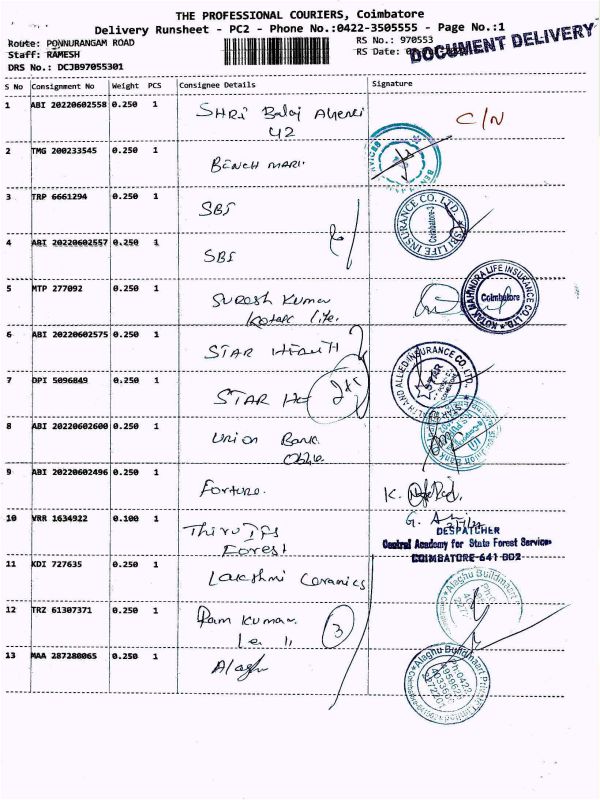 THE PROFESSIONAL COURIERS, Coimbatore
Delivery Runsheet - PC2 - Phone No.:0422-3505555 - Page No.:1
Route: PONNURANGAM ROAD
RS No.: 970553
Staff: RAMESH
RS Date:
DOCUMENT DELIVERY
DRS No.: DCJB97055301
S No Consignment No Weight PCS Consignee Details Signature
1 ABI 20220602558 0.250 1 SHRi Balaj
42
C/N
2 TMG 200233545 0.250 1 BENCH MARK
3 TRP 6661294 0.250 1 SBI
SBI LIFE INSURANCE CO. LTD. Coimbatore-2
4 ABI 20220602557 0.250 1 SBI
5 MTP 277092 0.250 1 SURESH Kumar
Kotak Life.
KOTAK MAHINDRA LIFE INSURANCE CO. LTD. Coimbatore
6 ABI 20220602575 0.250 1 STAR HEALTH
STAR HEALTH AND ALLIED INSURANCE CO. LTD.
7 DPI 5096849 0.250 1 STAR He
8 ABI 20220602600 0.250 1 Union Bank
9 ABI 20220602496 0.250 1 Fortune.
K.
10 VRR 1634922 0.100 1 Thiru IFS
Forest
G.
DESPATCHER
Central Academy for State Forest Service
COIMBATORE-641 002
11 KDI 727635 0.250 1 Lakshmi Ceramics
Alaghu Buildmaart
12 TRZ 61307371 0.250 1 Ram Kumar
3
13 MAA 287280065 0.250 1 Alaghu
Alaghu Buildmaart Private Limited
Ph:0422